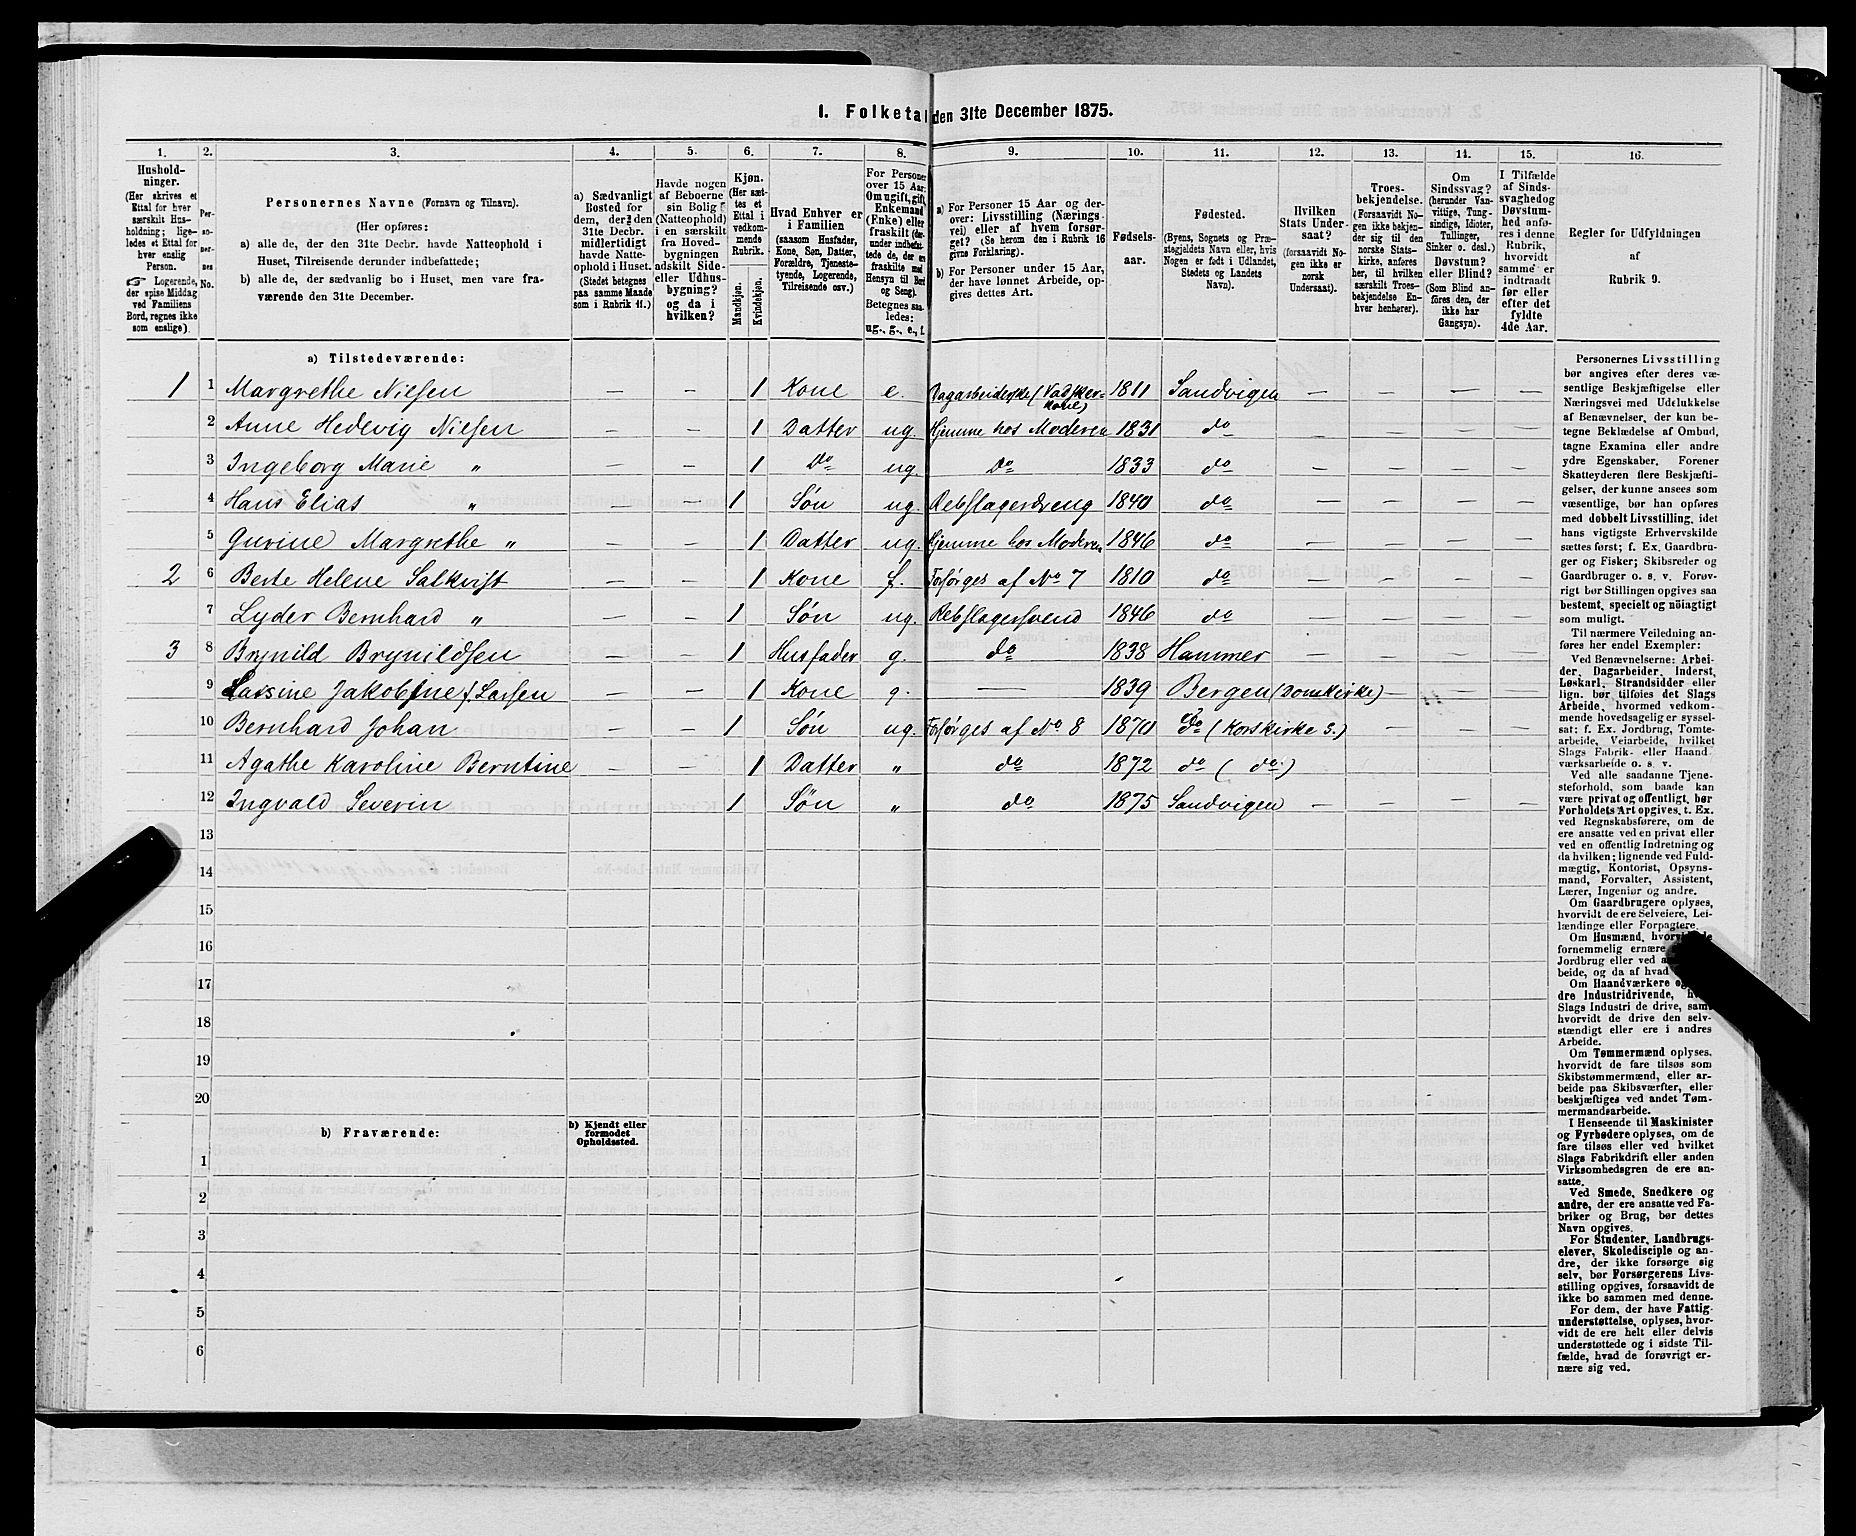 1. Folketal den 31te December 1875.
1. 2. 3. 4. 5. 6. 7. 8. 9. 10. 11. 12. 13. 14. 15. 16.
Hushold-
ninger.
(Her skrives et
Ettal for hver
særskilt Hus-
holdning; lige-
ledes et Ettal for
hver enslig
Person.
☞ Logerende,
der spise Middag
ved Familiens
Bord, regnes ikke
som enslige).
Per-
so-
ner-
nes
No.
Personernes Navne (Fornavn og Tilnavn).
(Her opføres:
a) alle de, der den 31te Decbr. havde Natteophold i
Huset, Tilreisende derunder indbefattede;
b) alle de, der sædvanlig bo i Huset, men vare fra-
værende den 31te December.
a) Sædvanligt
Bosted for
dem, der den
31te Decbr.
midlertidigt
havde Natte-
ophold i Huset.
(Stedet betegnes
paa samme Maade
som i Rubrik 11.)
Havde nogen
af Beboerne
sin Bolig
(Natteophold)
i en særskilt
fra Hoved-
bygningen
adskilt Side-
eller Udhus-
bygning?
og da i
hvilken?
Kjøn.
(Her sæt-
tes et
Ettal i
vedkom-
mende
Rubrik.
Mandkjøn.
Kvindekjøn.
Hvad Enhver er
i Familien
(saasom Husfader,
Kone, Søn, Datter,
Forældre, Tjeneste-
tyende, Logerende,
Tilreisende osv.)
For Personer
over 15 Aar:
Om ugift, gift,
Enkemand
(Enke) eller
fraskilt (der-
under indbefat-
tede de, der ere
fraskilte med
Hensyn til Bord
og Seng).
Betegnes saa-
ledes:
ug., g., e., f.
a) For Personer 15 Aar og der-
over: Livsstilling (Nærings-
vei) eller af hvem forsør-
get? (Se herom den i Rubrik 16
givne Forklaring).
b) For Personer under 15 Aar,
der have lønnet Arbeide, op-
gives dettes Art.
Fødsels-
aar.
Fødested.
(Byens, Sognets og Præ-
stegjeldets Navn eller, hvis
Nogen er født i Udlandet,
Stedets og Landets
Navn).
Hvilken
Stats Under-
saat?
(forsaavidt No-
gen ikke er
norsk
Undersaat).
Troes-
bekjendelse.
(Forsaavidt No-
gen ikke bekjen-
der sig til den
norske Stats-
kirke, anføres
her, til hvilken
særskilt Troes-
bekjendelse En-
hver henhører).
Om
Sindssvag?
(herunder Van-
vittige, Tung-
sindige, Idioter,
Tullinger,
Sinker o. desl.)
Døvstum?
eller Blind?
(Som Blind an-
føres den, der
ikke har
Gangsyn).
I Tilfælde
af Sinds-
svaghed og
Døvstum-
hed anfø-
res i denne
Rubrik,
hvorvidt
samme er
indtraadt
før eller
efter det
fyldte
4de Aar.
Regler for Udfyldningen
af
Rubrik 9.
a) Tilstedeværende:
1 1 Margrethe Nielsen — — 1 Kone e. Dagarbeiderske (Vadsker-
kone) 1811 Sandvigen — — — —
2 Anne Hedevig Nielsen — — 1 Datter ug. Hjemme hos Moderen 1831 do — — — —
3 Ingeborg Marie „ — — 1 Do ug. Do 1833 do — — — —
4 Hans Elias „ — — 1 Søn ug. Rebslagerdreng 1840 do — — — —
5 Gurine Margrethe „ — — 1 Datter ug. Hjemme hos Moderen 1846 do — — — —
2 6 Berte Helene Salkvist — — 1 Kone f. Forsørges af No 7 1810 do — — — —
7 Lyder Bernhard „ — — 1 Søn ug. Rebslagersvend 1846 do — — — —
3 8 Brynild Brynildsen — — 1 Husfader g. do 1838 Hammer — — — —
9 Larsine Jakobine f. Larsen — — 1 Kone g. — 1839 Bergen (Domkirke) — — —
10 Bernhard Johan — — 1 Søn ug. Forsørges af No 8 1870 do (Korskirke S.) — — —
11 Agathe Karoline Berntine — — 1 Datter „ do 1872 do ( do ) — — — —
12 Ingvald Severin — — 1 Søn „ do 1875 Sandvigen — — — —
13
14
15
16
17
18
19
20
b) Fraværende:
b) Kjendt eller
formodet
Opholdssted.
1
2
3
4
5
6
Personernes Livsstilling
bør angives efter deres væ-
sentlige Beskjæftigelse eller
Næringsvei med Udelukkelse
af Benævnelser, der kun be-
tegne Beklædelse af Ombud,
tagne Examina eller andre
ydre Egenskaber. Forener
Skatteyderen flere Beskjæfti-
gelser, der kunne ansees som
væsentlige, bør han opføres
med dobbelt Livsstilling, idet
hans vigtigste Erhvervskilde
sættes først; f. Ex. Gaardbru-
ger og Fisker; Skibsreder og
Gaardbruger o. s. v. Forøv-
rigt bør Stillingen opgives saa
bestemt, specielt og nöiagtigt
som muligt.
Til nærmere Veiledning an-
føres her endel Exempler:
Ved Benævnelserne: Arbei-
der, Dagarbeider, Inderst,
Løskarl, Strandsidder eller
lign. bør tilføies det Slags
Arbeide, hvormed vedkom-
mende hovedsagelig er syssel-
sat: f. Ex. Jordbrug, Tomte-
arbeide, Veiarbeide, hvilket
Slags Fabrik- eller Haand
værksarbeide o. s. v.
Ved alle saadanne Tjene-
steforhold, som baade kan
være privat og offentligt, bør
Forholdets Art opgives, t. Ex.
ved Regnskabsførere, om de
ere ansatte ved en privat eller
ved en offentlig Indretning og
da hvilken; lignende ved Fuld-
mægtig, Kontorist, Opsyns-
mand, Forvalter, Assistent,
Lærer, Ingeniør og andre.
Om Gaardbrugere oplyses,
hvorvidt de ere Selveiere, Lei-
lændinge eller Forpagtere.
Om Husmænd, hvorvidt de
fornemmelig ernære
Jordbrug eller ved
beide, og da af hvad
Om Haandværkere og
dre Industridrivende,
Slags Industri de drive, samt
hvorvidt de drive den selv-
stændigt eller ere i andres
Arbeide.
Om Tømmermænd oplyses,
hvorvidt de fare tilsøs som
Skibstømmermænd, eller ar-
beide paa Skibsværfter, eller
beskjæftiges ved andet Tøm-
mermandsarbeide.
I Henseende til Maskinister
og Fyrbødere oplyses, om de
fare tilsøs eller ved hvilket
Slags Fabrikdrift eller anden
Virksomhedsgren de ere an-
satte.
Ved Smede, Snedkere og
andre, der ere ansatte ved Fa-
briker og Brug, bør dettes
Navn opgives.
For Studenter, Landbrugs-
elever, Skoledisciple og an-
dre, der ikke forsørge sig
selv, bør Forsørgerens Livs-
stilling opgives, forsaavidt de
ikke bo sammen med denne.
For dem, der have Fattig-
understøttelse, oplyses, hvor-
vidt de ere helt eller delvis
understøttede og i sidste Til-
fælde, hvad de forøvrigt er-
nære sig ved.